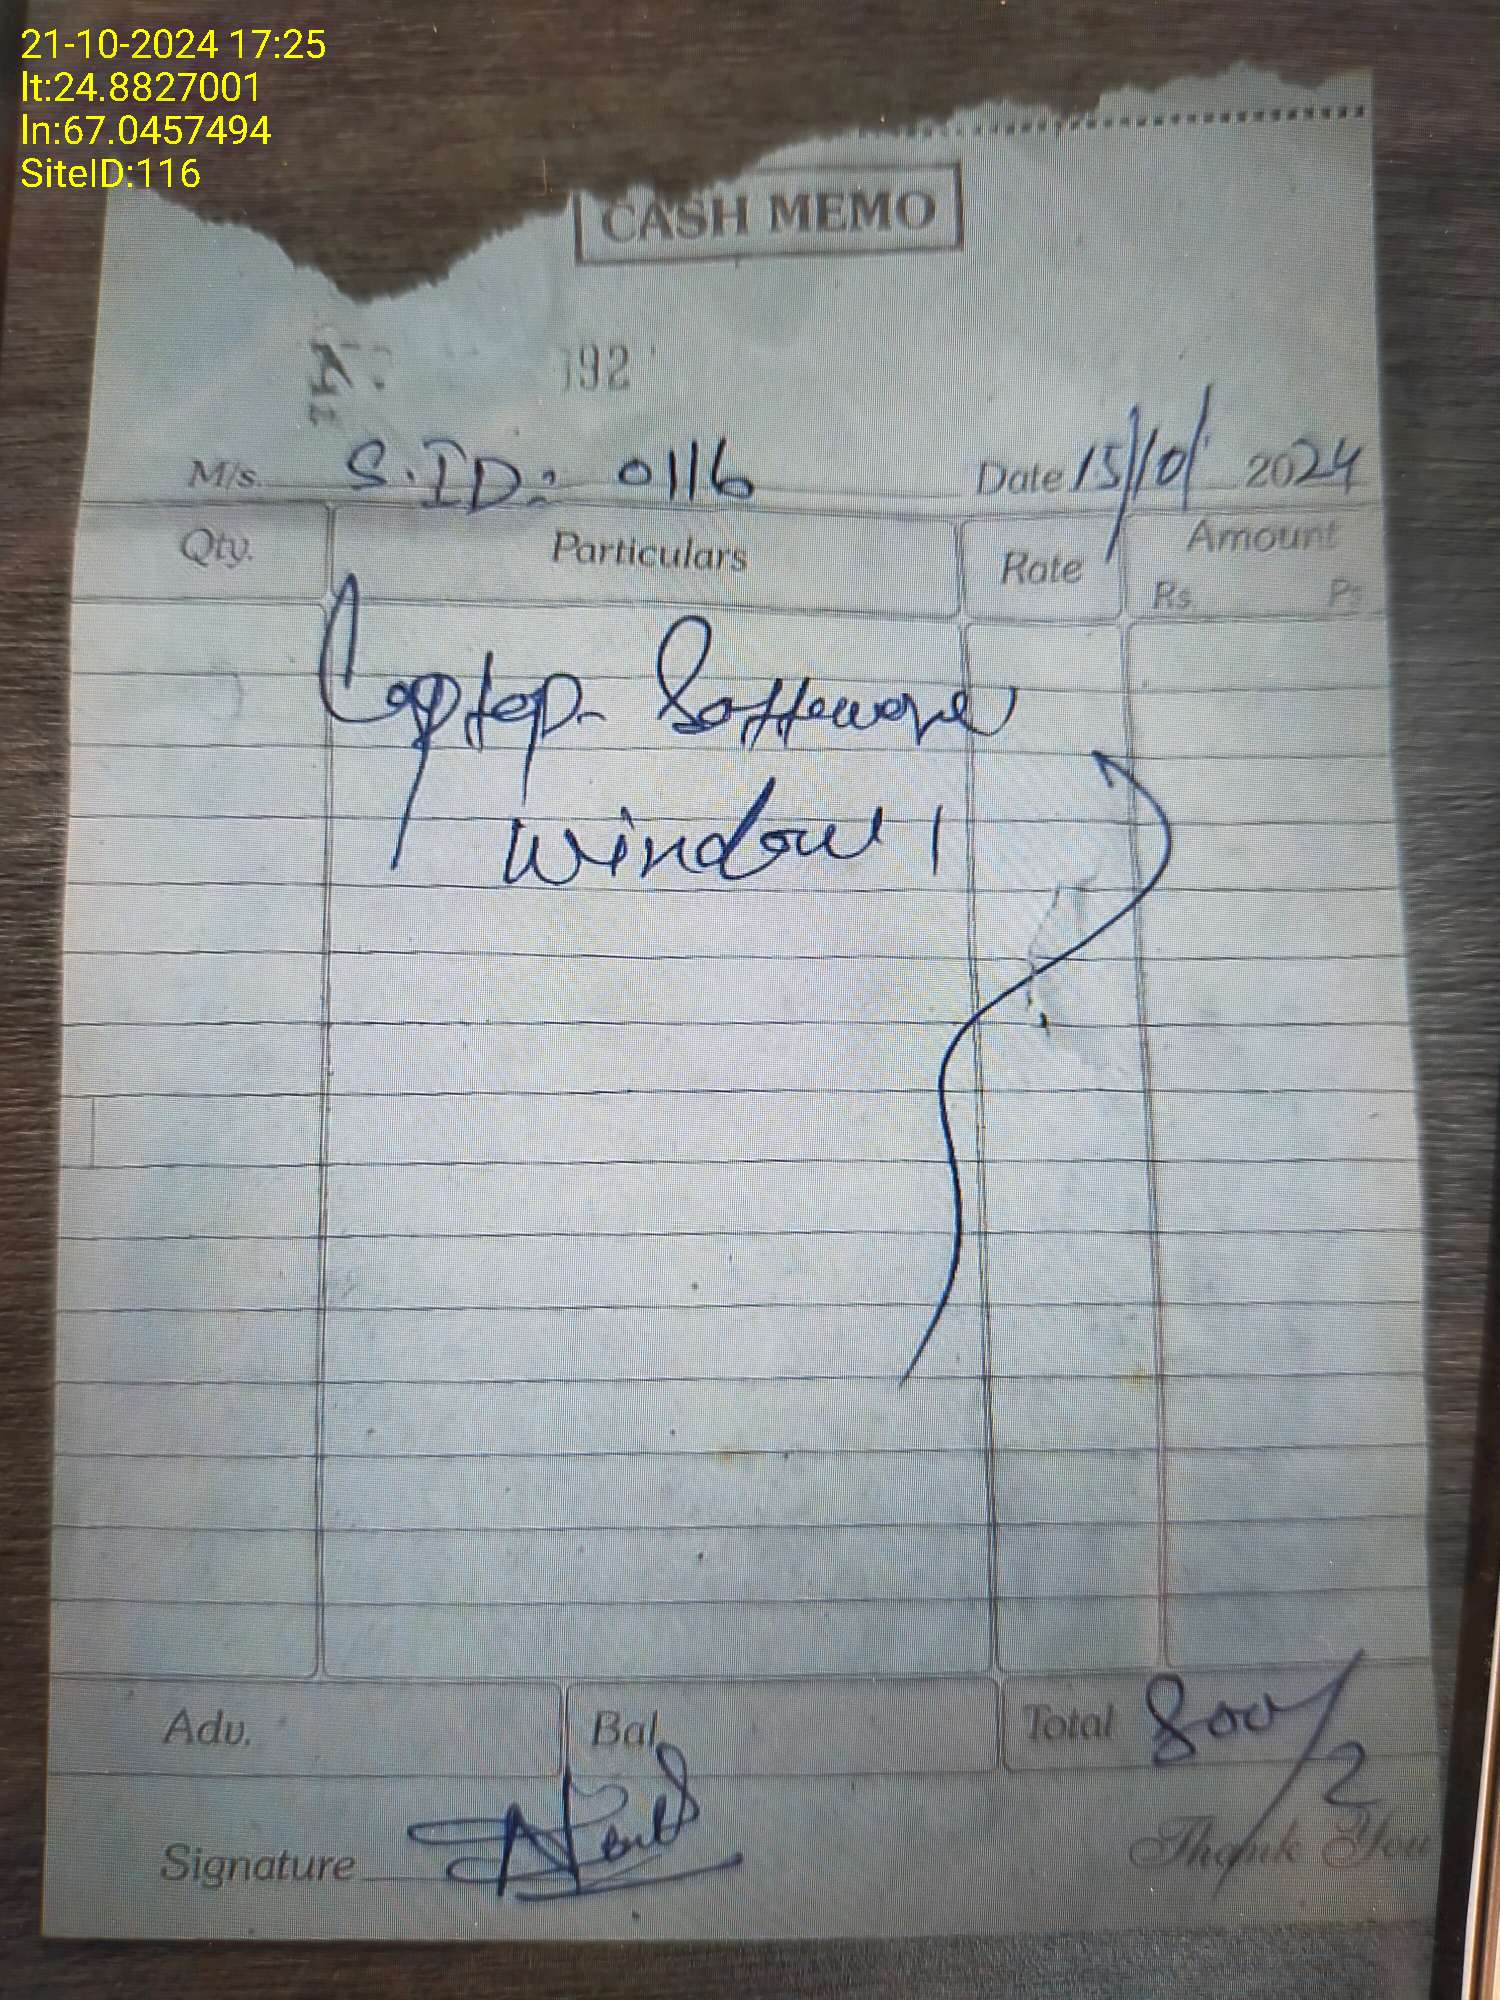 21-10-2024 17:25
lt:24.8827001
ln:67.0457494
SiteID:116
CASH MEMO
92
M/s. S.ID: 0116 Date 15/10/ 2024
Qty. Particulars Rate Amount
Rs. Ps
Laptop Software
Window 1
Adv. Bal. Total 800/2
Signature
Thank You